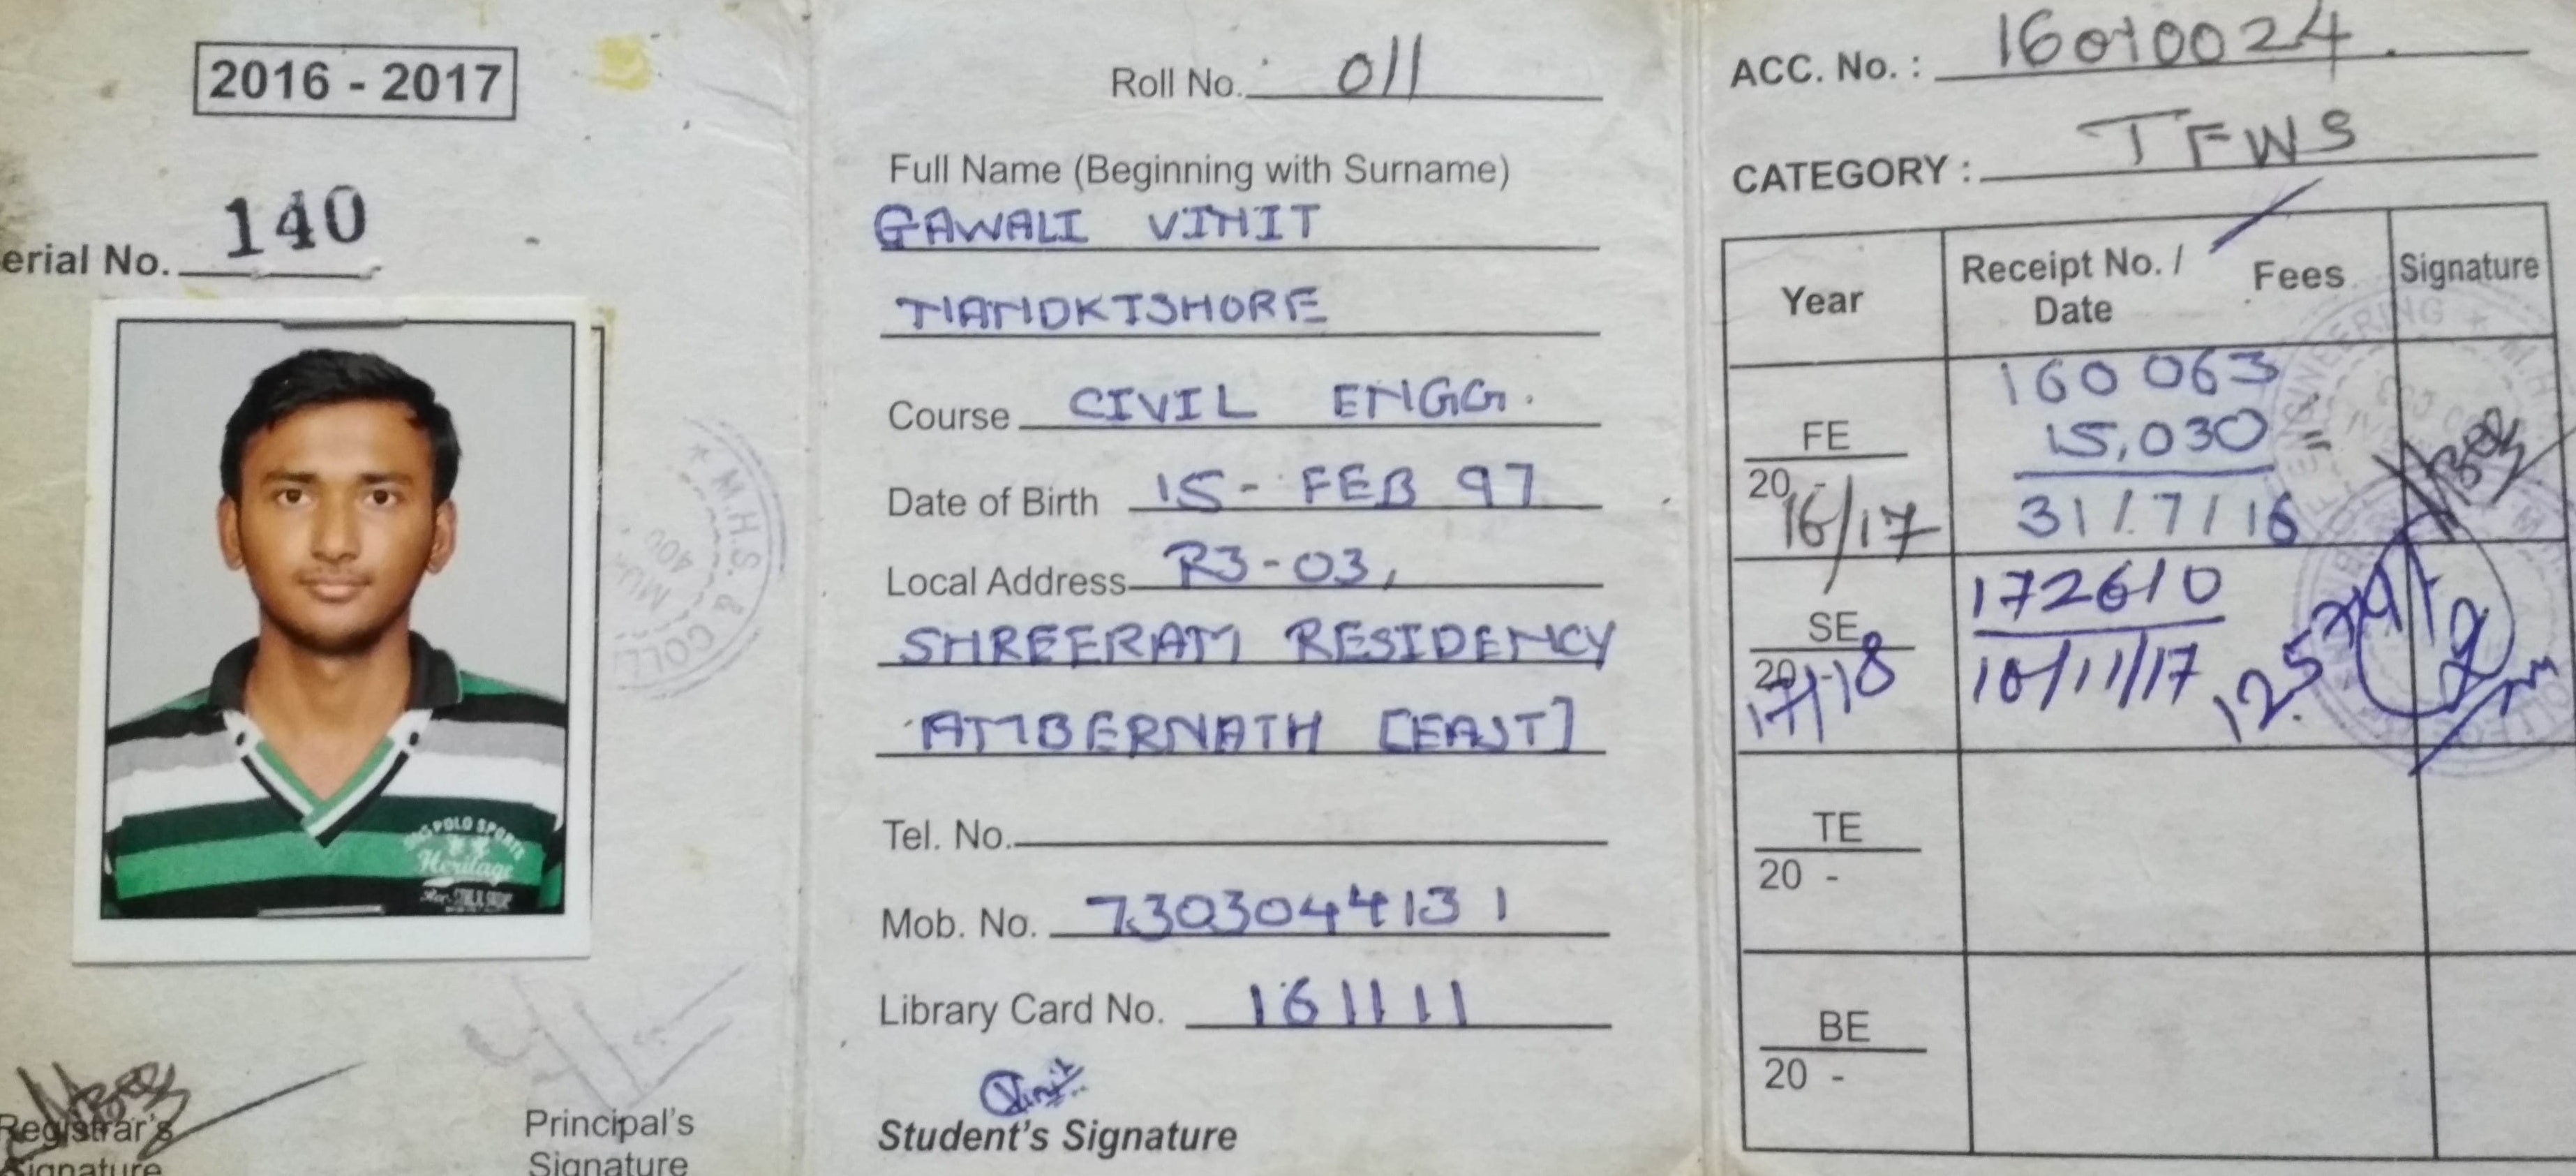 2016 - 2017
erial No. 140
POLO SPORTS
Heritage
M.H.S. & COLL
Registrar's
Signature
Principal's
Signature
Roll No. 011
Full Name (Beginning with Surname)
GAWALI VINIT
NANDKISHORE
Course CIVIL ENGG.
Date of Birth 15 - FEB 97
Local Address R3-03,
SHREERAM RESIDENCY
AMBERNATH [EAST]
Tel. No.
Mob. No. 7303044131
Library Card No. 161111
Vinit
Student's Signature
ACC. No. : 16010024.
CATEGORY : TFWS
Year Receipt No. / Date Fees Signature
FE
20 -
16/17
160063
15,030 =
31/7/16
SE
20 -
17/18
172610
10/11/17
TE
20 -
BE
20 -